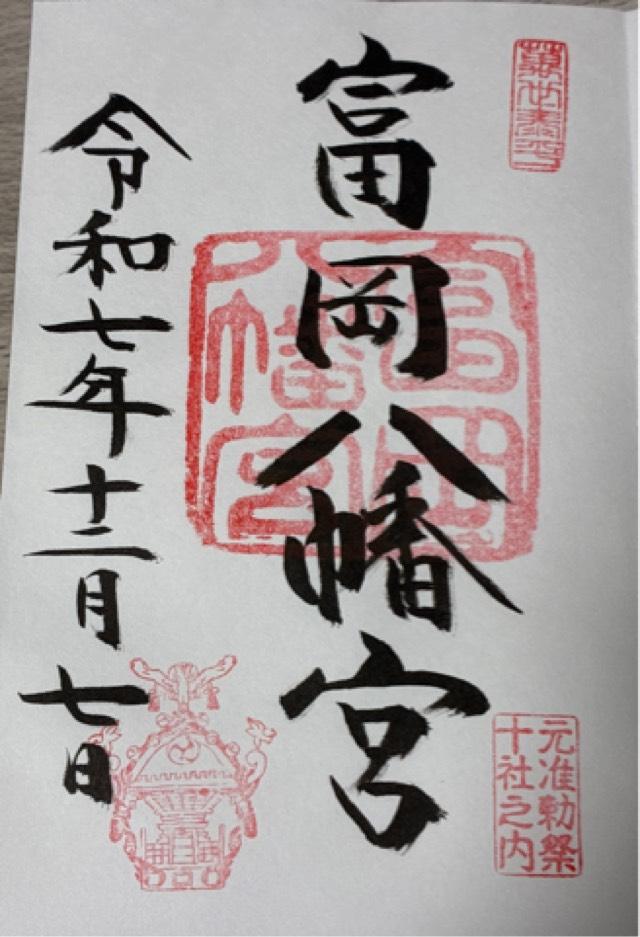 萬世泰平
富岡八幡宮
富岡八幡宮
元准勅祭
十社之内
令和七年十二月七日